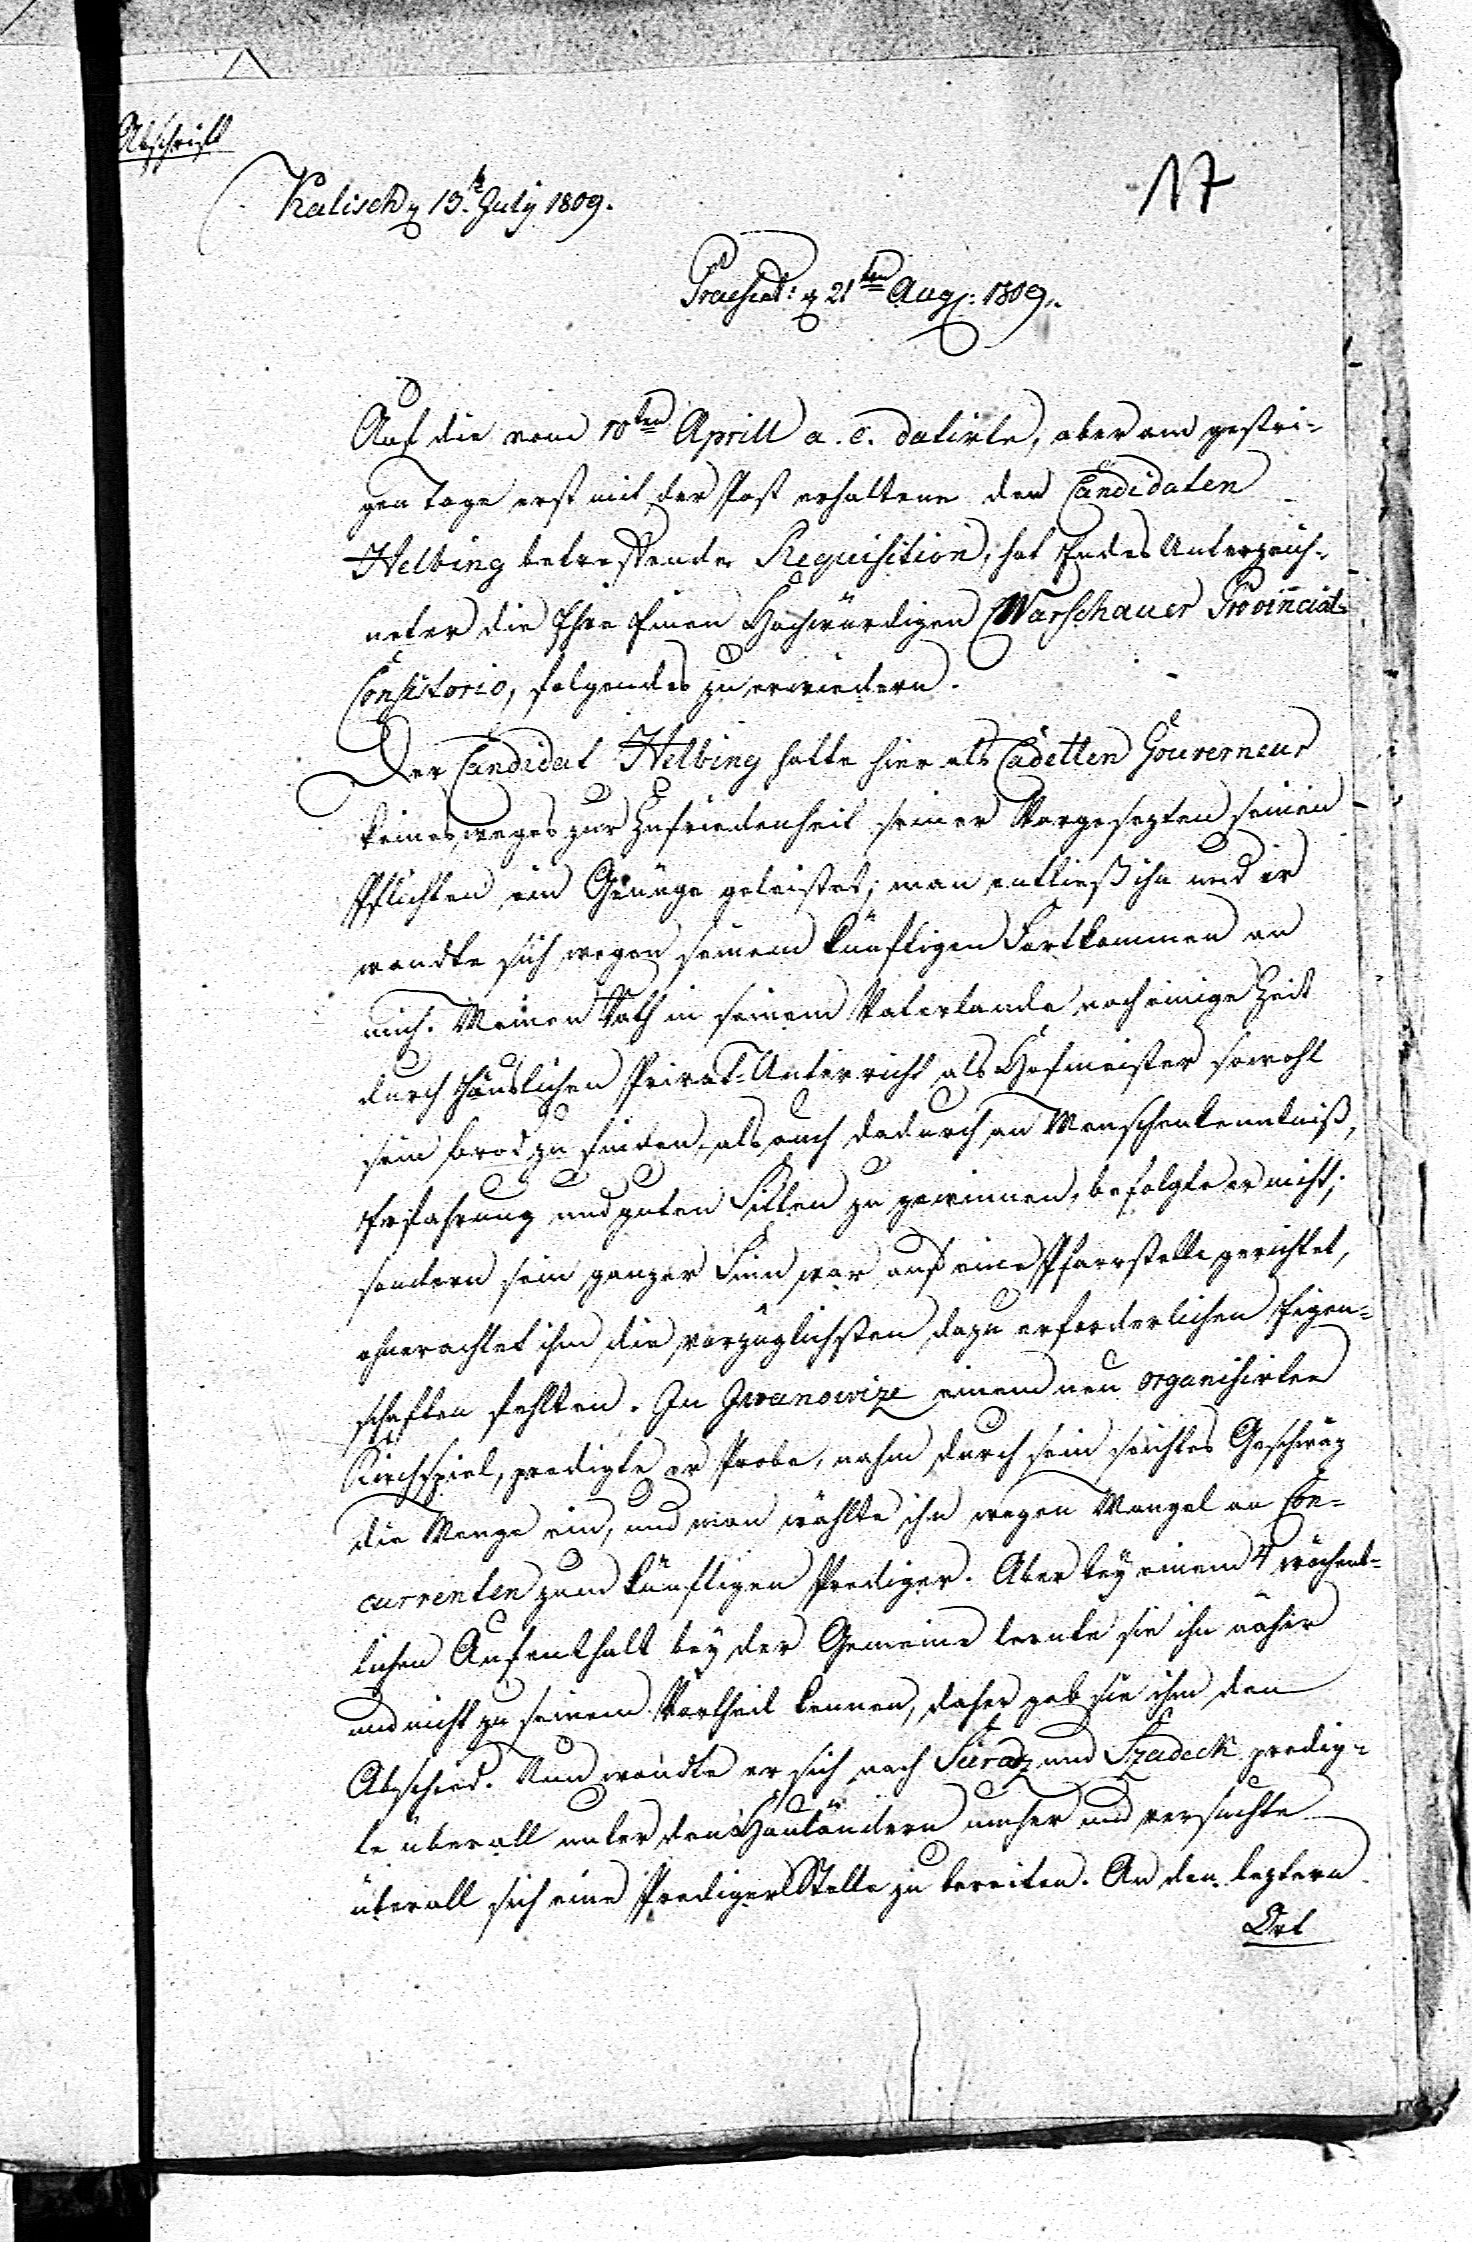 Abschrift
Kalisch d 15t July 1809.
17
Praesent: d 21ten Aug: 1809.
Auf die vom 10ten Aprill a. c. datirte, aber am gestri-
gen Tage erst mit der Post erhaltene den Candidaten
Helbing betreffende Requisition, hat Endes Unterzeich-
neter die Ehre Einen Hochwürdigen Warschauer Provincial-
Consistorio, folgendes zu erwiedern.
Der Candidat Helbing hatte hier als Cadetten Gouverneur
keinesweges zur Zufriedenheit seiner Vorgesezten seinen
Pflichten ein Genüge geleistet; man entließ ihn und er
wandte sich wegen seinem künftigen Fortkommen an
mich. Meinen Rath in seinem Vaterlande noch einige Zeit
durch häuslichen Privat-Unterricht als Hofmeister sowohl
sein Brod zu finden, als auch dadurch an Menschenkenntniß,
Erfahrung und guten Sitten zu gewinnen, befolgte er nicht;
sondern sein ganzer Sinn war auf eine Pfarrstelle gerichtet,
ohnerachtet ihm die vorzüglichsten dazu erforderlichen Eigen-
schaften fehlten. In Iwanowize einem neu organisirten
Kirchspiel, predigte er Probe, nahm durch sein seichtes Geschwäz
die Menge ein, und man wählte ihn wegen Mangel an Con-
currenten zum künftigen Prediger. Aber bey einem 4 wöchent-
lichen Aufenthalt bey der Gemeine lernte sie ihn näher
und nicht zu seinem Vortheil kennen, daher gab sie ihm den
Abschied. Nun wandte er sich nach Siradz und Szadeck predig-
te überall unter den Hauländern umher und versuchte
überall sich eine Prediger Stelle zu bereiten. An den leztern
Ort